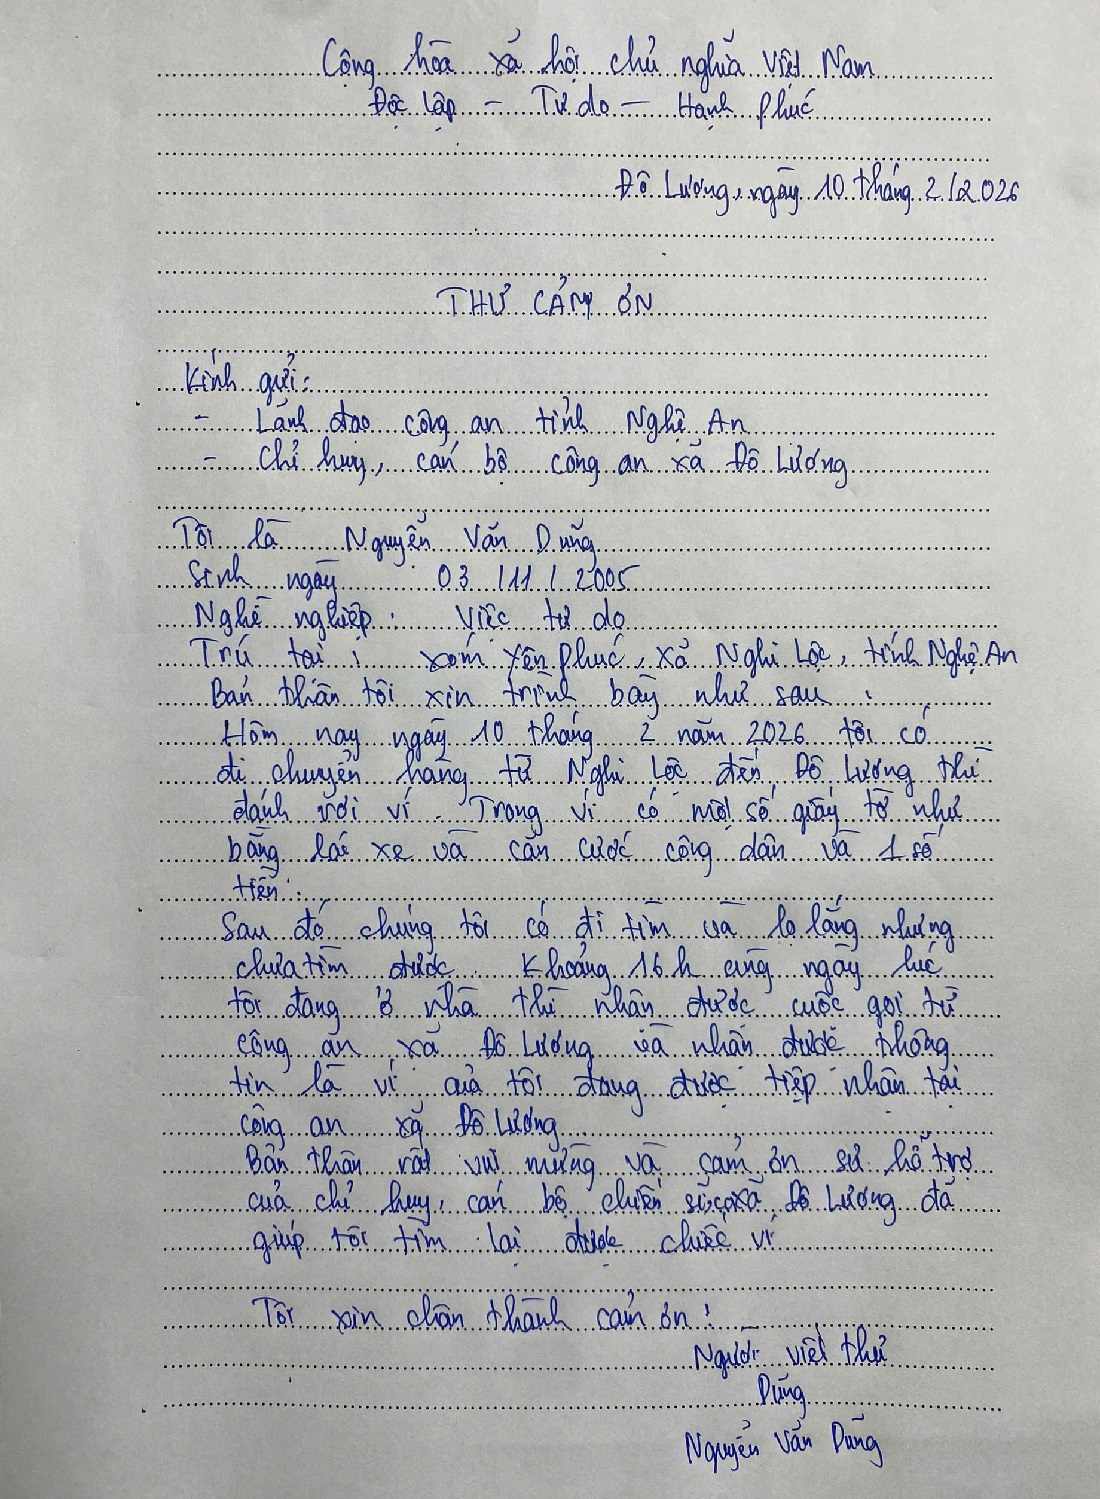 Cộng hòa xã hội chủ nghĩa Việt Nam
Độc lập - Tự do - Hạnh phúc
Đô Lương, ngày 10 tháng 2/2026
THƯ CẢM ƠN
Kính gửi:
- Lãnh đạo công an tỉnh Nghệ An
- Chỉ huy, cán bộ công an xã Đô Lương
Tôi là Nguyễn Văn Dũng
Sinh ngày 03/11/2005
Nghề nghiệp: Việc tự do
Trú tại: xóm Yên Phúc, xã Nghi Lộc, tỉnh Nghệ An
Bản thân tôi xin trình bày như sau:
Hôm nay ngày 10 tháng 2 năm 2026 tôi có
di chuyển hàng từ Nghi Lộc đến Đô Lương thì
đánh rơi ví. Trong ví có một số giấy tờ như
bằng lái xe và căn cước công dân và 1 số
tiền.
Sau đó chúng tôi có đi tìm và lo lắng nhưng
chưa tìm được. Khoảng 16h cùng ngày lúc
tôi đang ở nhà thì nhận được cuộc gọi từ
công an xã Đô Lương và nhận được thông
tin là ví của tôi đang được tiếp nhận tại
công an xã Đô Lương
Bản thân rất vui mừng và cảm ơn sự hỗ trợ
của chỉ huy, cán bộ chiến sĩ caxã Đô Lương đã
giúp tôi tìm lại được chiếc ví
Tôi xin chân thành cảm ơn!
Người viết thư
Dũng
Nguyễn Văn Dũng